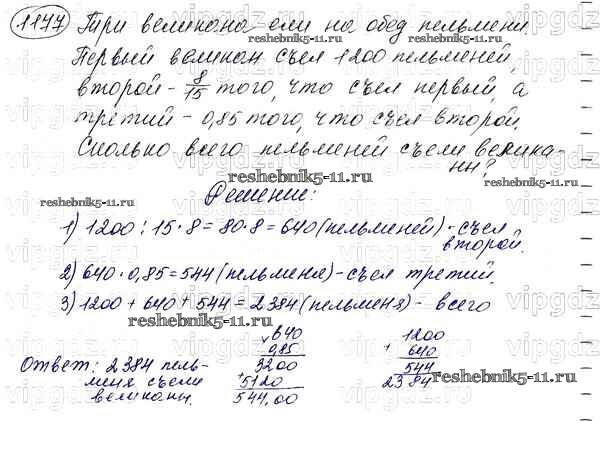 1177 Три великана ели на обед пельмени.
Первый великан съел 1200 пельменей,
второй - 8/15 того, что съел первый, а
третий - 0,85 того, что съел второй.
Сколько всего пельменей съели велика-
ны?
reshebnik5-11.ru
Решение:
1) 1200 : 15 · 8 = 80 · 8 = 640 (пельменей) - съел
второй.
2) 640 · 0,85 = 544 (пельменя) - съел третий.
3) 1200 + 640 + 544 = 2384 (пельменя) - всего
reshebnik5-11.ru
Ответ: 2384 пель-
меня съели
великаны.
× 640
0,85
3200
+ 5120
544,00
1200
+ 640
544
2384
reshebnik5-11.ru
vipgdz